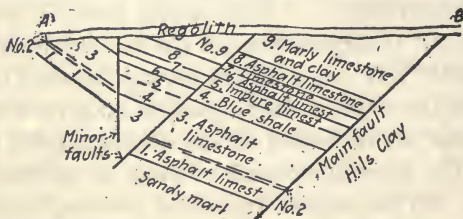 A
B
Regolith
No.2
5
3
8
6
5
4
3
No.9
9. Marly limestone
and clay
8. Asphalt limestone
Limestone
Asphalt limest
5. Impure limest
4. Blue shale
3. Asphalt
limestone
1. Asphalt limest
Sandy marl
No.2
Minor
faults
Main fault
Hils Clay